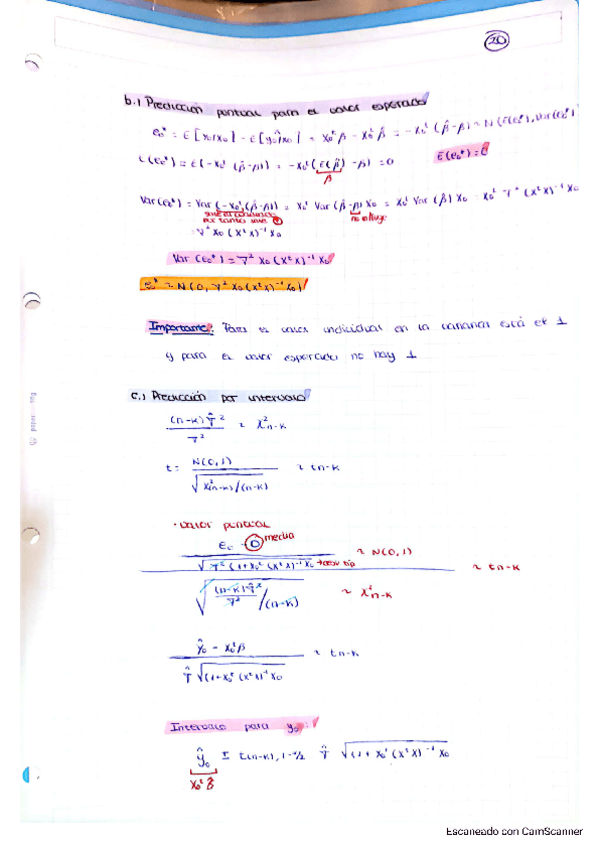 20
b.) Predicción puntual para el valor esperado
e₀* = E[y₀/x₀] - Ê[y₀/x₀] = x₀'β - x₀'β̂ = -x₀'(β̂-β) ~ N(E(e₀*), Var(e₀*)
E(e₀*) = E(-x₀'(β̂-β)) = -x₀'(E(β̂)-β) = 0 E(e₀*)=0
β
Var(e₀*) = Var(-x₀'(β̂-β)) = x₀' Var(β̂-β)x₀ = x₀' Var(β̂) x₀ = x₀' σ² (x'x)⁻¹ x₀
no influye
= σ² x₀(x'x)⁻¹x₀
Var(e₀*) = σ² x₀(x'x)⁻¹ x₀
e₀* ~ N(0, σ² x₀(x'x)⁻¹x₀)
Importante: Para el valor individual en la varianza está el 1
y para el valor esperado no hay 1
c.) Predicción por intervalo
(n-k)σ̂² / σ² ~ χ²n-k
t = N(0,1) / √χ²(n-k)/(n-k) ~ tn-k
· valor puntual
e₀ - 0 media
√σ²(1+x₀'(x'x)⁻¹x₀ ~ N(0,1)
~ tn-k
√(n-k)σ̂²/σ² /(n-k) ~ χ²n-k
ŷ₀ - x₀'β / σ̂ √(1+x₀'(x'x)⁻¹x₀ ~ tn-k
Intervalo para y₀:
ŷ₀ ± t(n-k), 1-α/2 σ̂ √(1+x₀'(x'x)⁻¹x₀
x₀'β̂
Escaneado con CamScanner